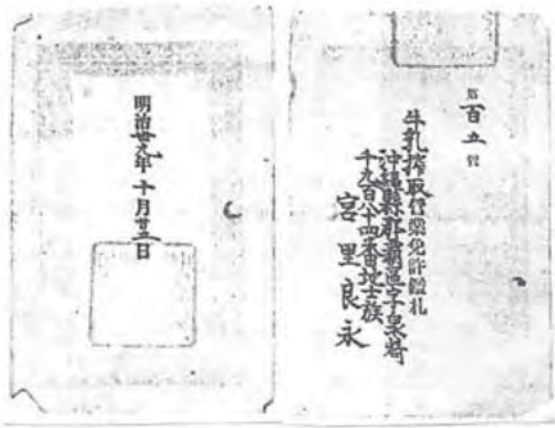 第百五號
牛乳搾取営業免許鑑札
沖縄縣那覇區字泉崎
千九百八十四番地士族
宮里良永
明治廿九年十月廿五日